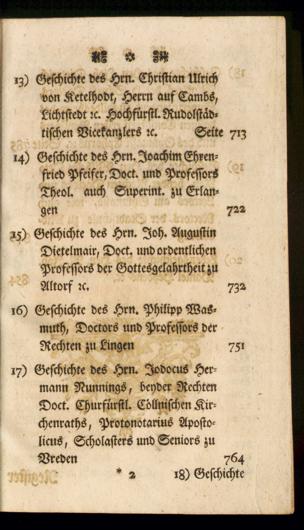 13) Geschichte des Hrn. Christian Ulrich
von Ketelhodt, Herrn auf Cambs,
Lichtstedt ꝛc. Hochfürstl. Rudolstäd-
tischen Vicekanzlers ꝛc. Seite 713
14) Geschichte des Hrn. Joachim Ehren-
fried Pfeifer, Doct. und Professors
Theol. auch Superint. zu Erlan-
gen 722
15) Geschichte des Hrn. Joh. Augustin
Dietelmair, Doct. und ordentlichen
Professors der Gottesgelahrtheit zu
Altorf ꝛc. 732
16) Geschichte des Hrn. Philipp Was-
muth, Doctors und Professors der
Rechten zu Lingen 751
17) Geschichte des Hrn. Jodocus Her-
mann Nunnings, beyder Rechten
Doct. Churfürstl. Cöllnischen Kir-
chenraths, Protonotarius Aposto-
licus, Scholasters und Seniors zu
Vreden 764
* 2 18) Geschichte